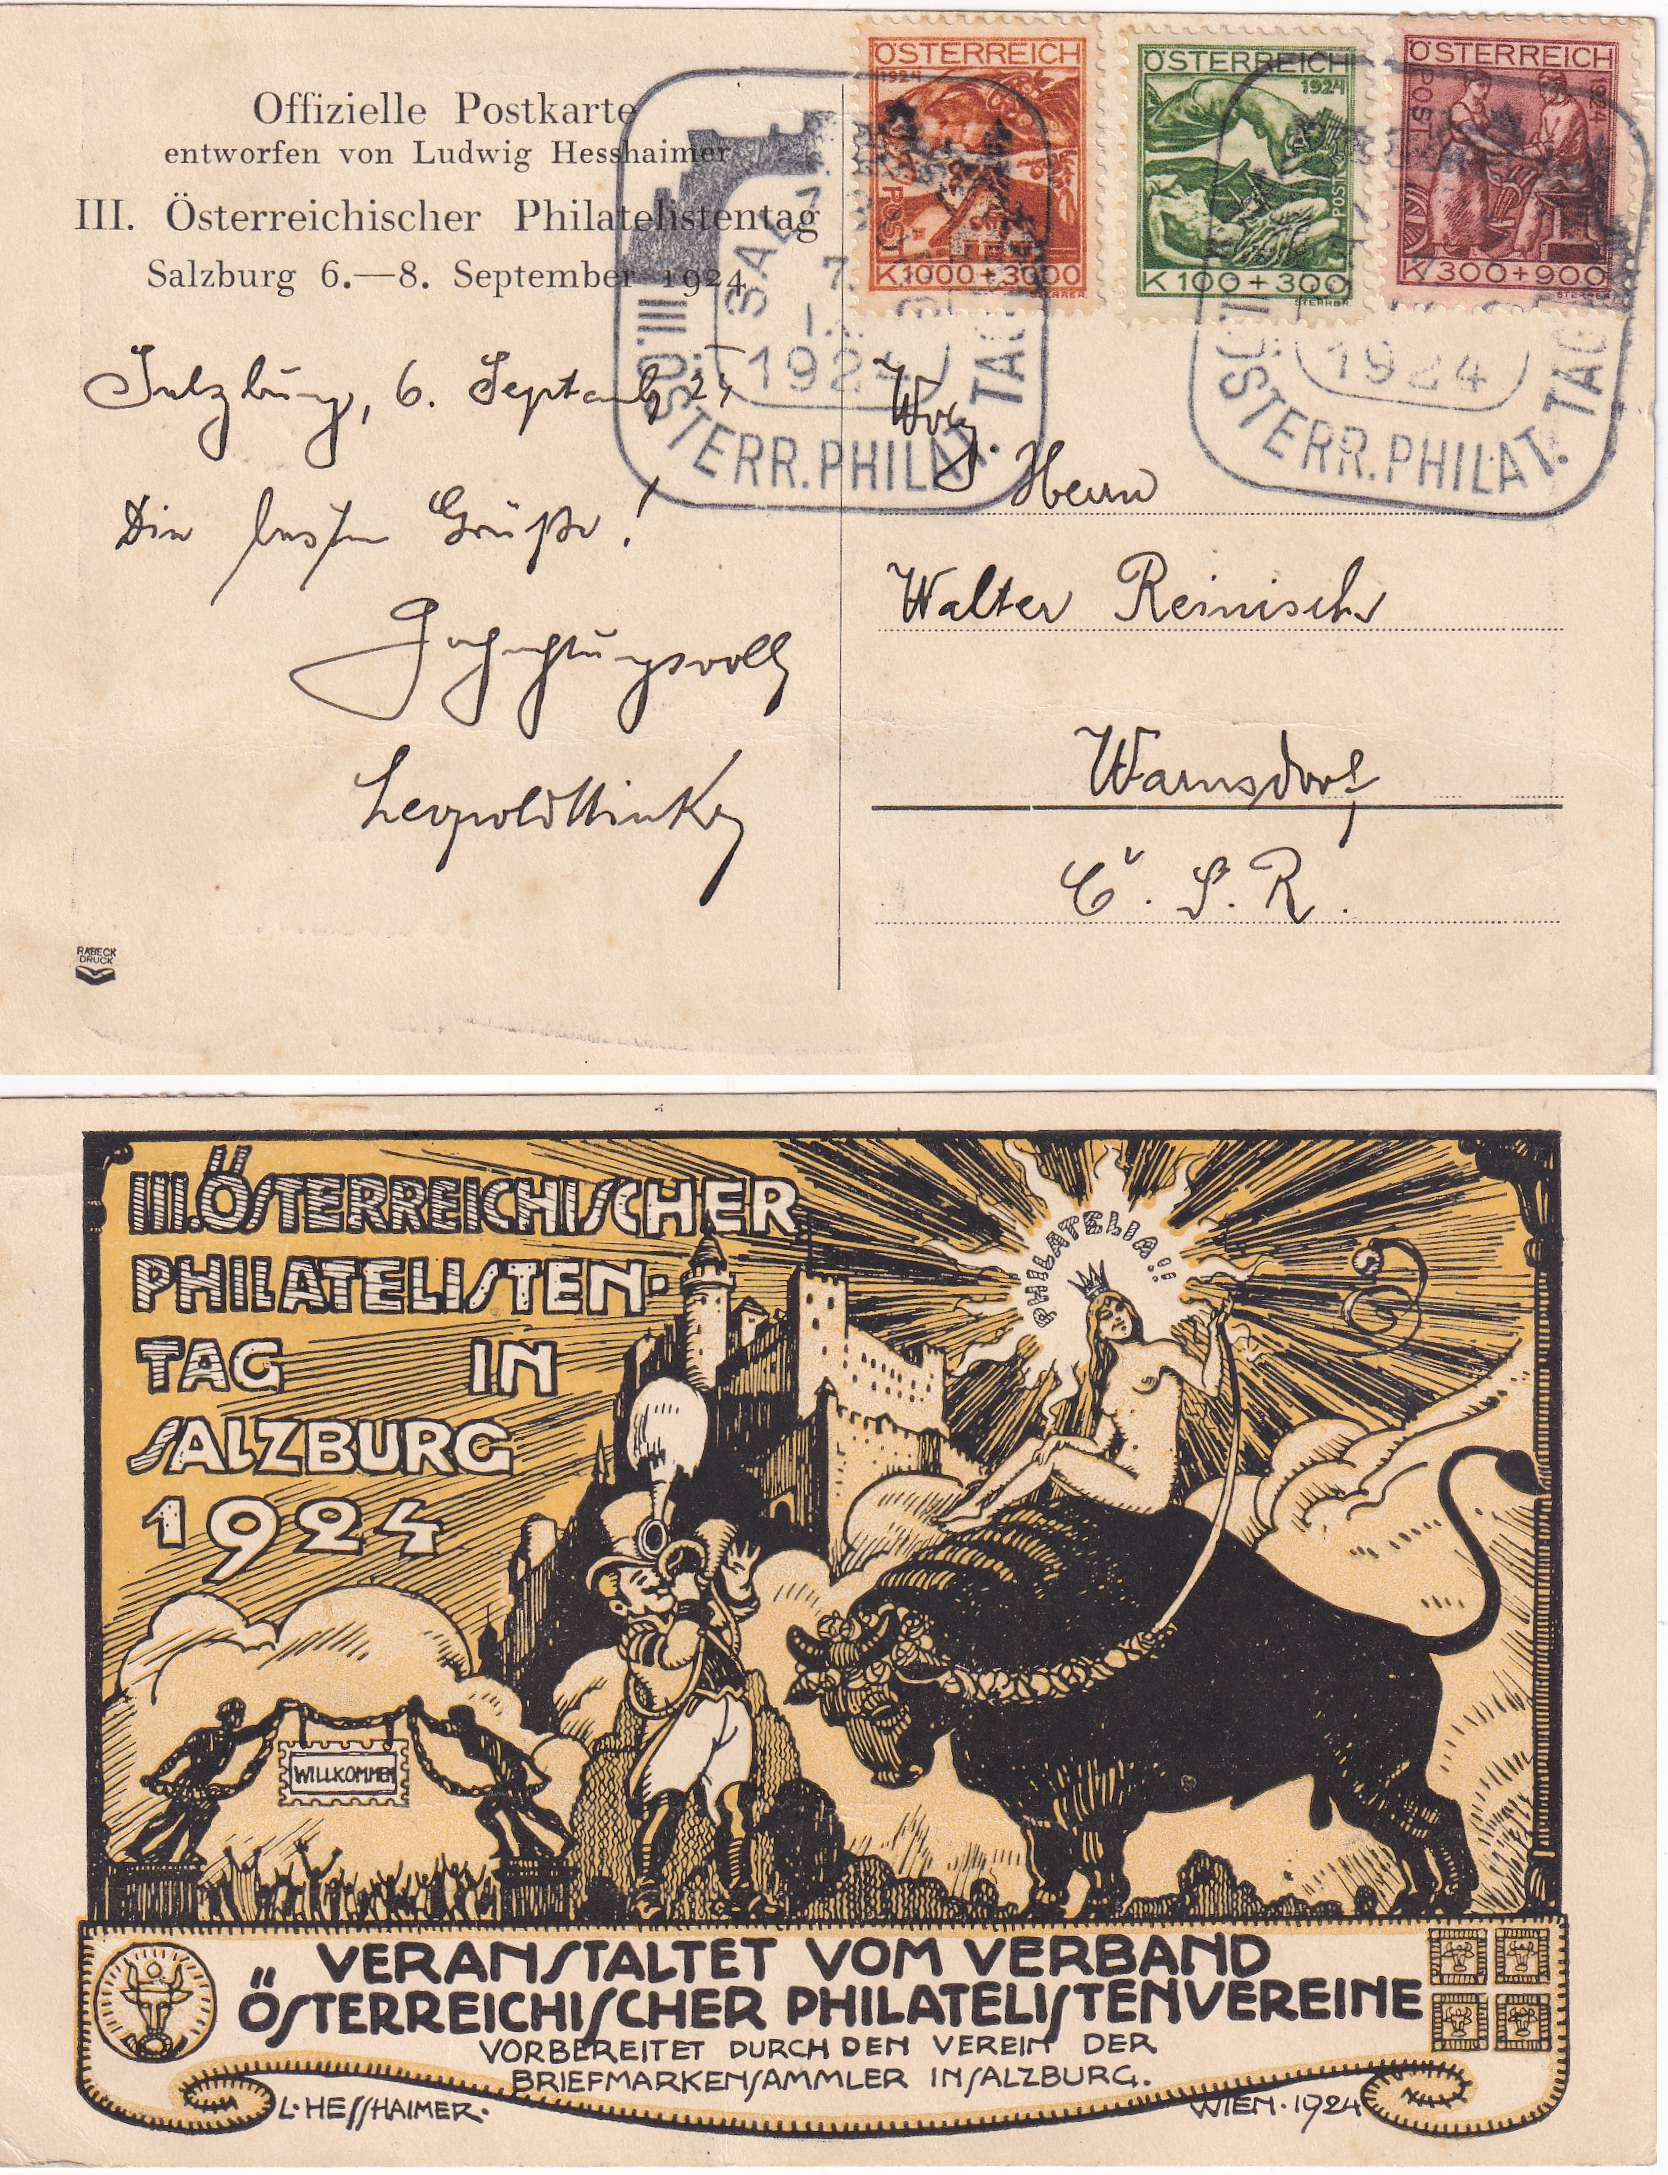 Offizielle Postkarte
entworfen von Ludwig Hesshaimer
III. Österreichischer Philatelistentag
Salzburg 6.—8. September 1924
ÖSTERREICH
1924
POST
K 1000 + 3000
STERRER
ÖSTERREICH
1924
POST
K 100 + 300
STERRER
ÖSTERREICH
POST
1924
K 300 + 900
STERRER
7
1924
III. ÖSTERR. PHILAT. TAG
1924
ÖSTERR. PHILAT. TAG
Salzburg, 6. Septemb 24
Die besten Grüße!
Hochachtungsvoll
Leopold
Herrn
Walter Reinisch
Warnsdorf
Č. S. R.
RABECK
DRUCK
III. ÖSTERREICHISCHER
PHILATELISTEN-
TAG IN
SALZBURG
1924
PHILATELIA!!
WILLKOMMEN
VERANSTALTET VOM VERBAND
ÖSTERREICHISCHER PHILATELISTENVEREINE
VORBEREITET DURCH DEN VEREIN DER
BRIEFMARKENSAMMLER IN SALZBURG.
L. HESSHAIMER.
WIEN. 1924